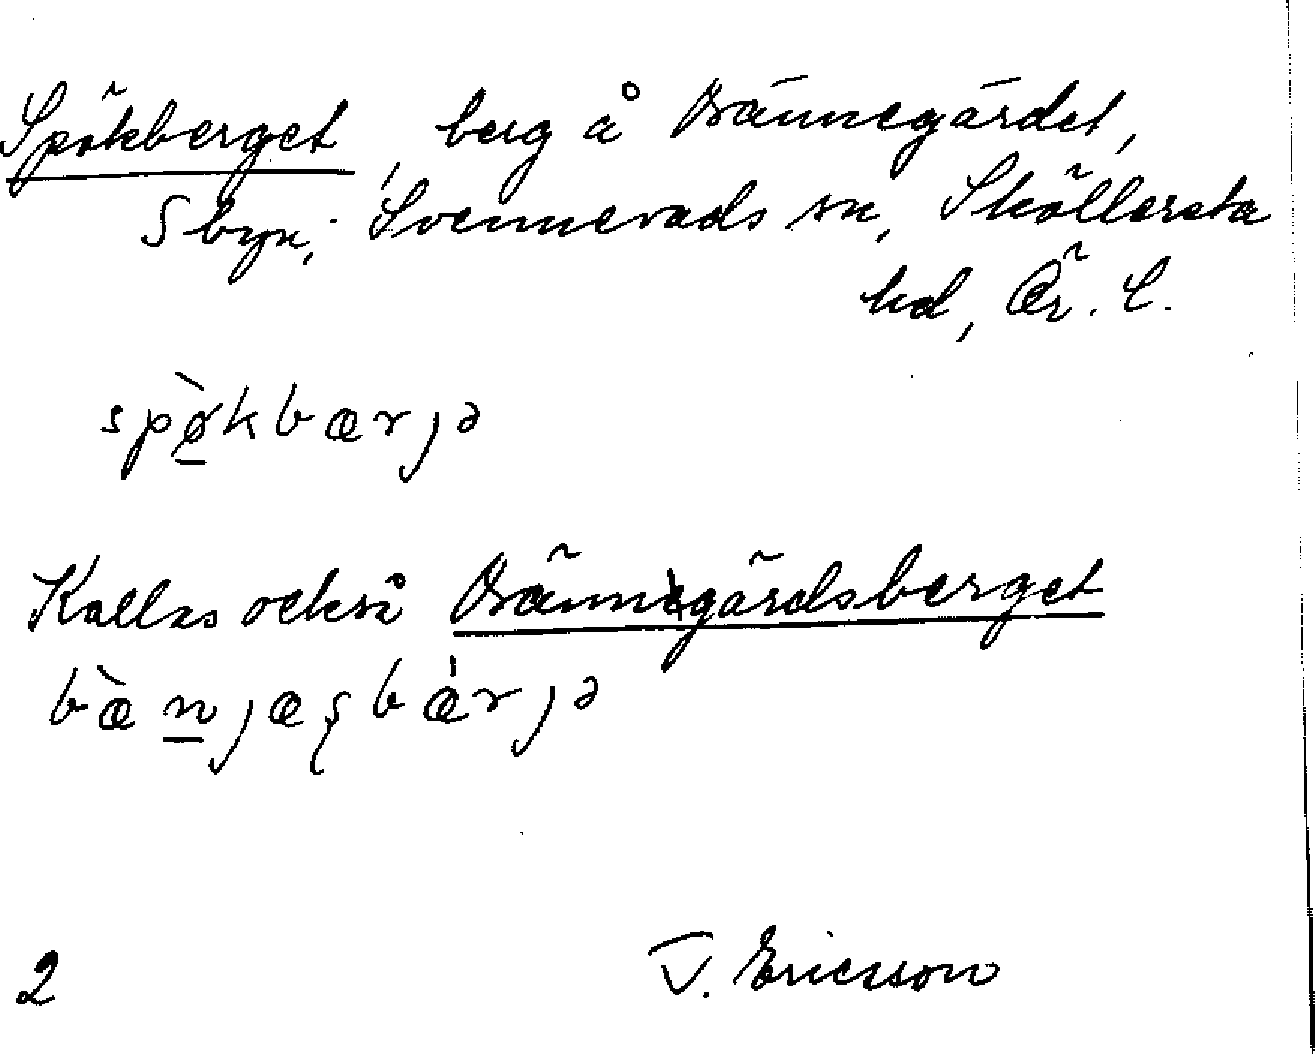 Spökberget, berg å Bännegärdet,
S byn, Svennevads sn, Sköllersta
hd, Ör. l.
spø̀kbærjə
Kallas också Bännegärdsberget
bæ̀njæʂbǽrjə
2 V. Ericsson